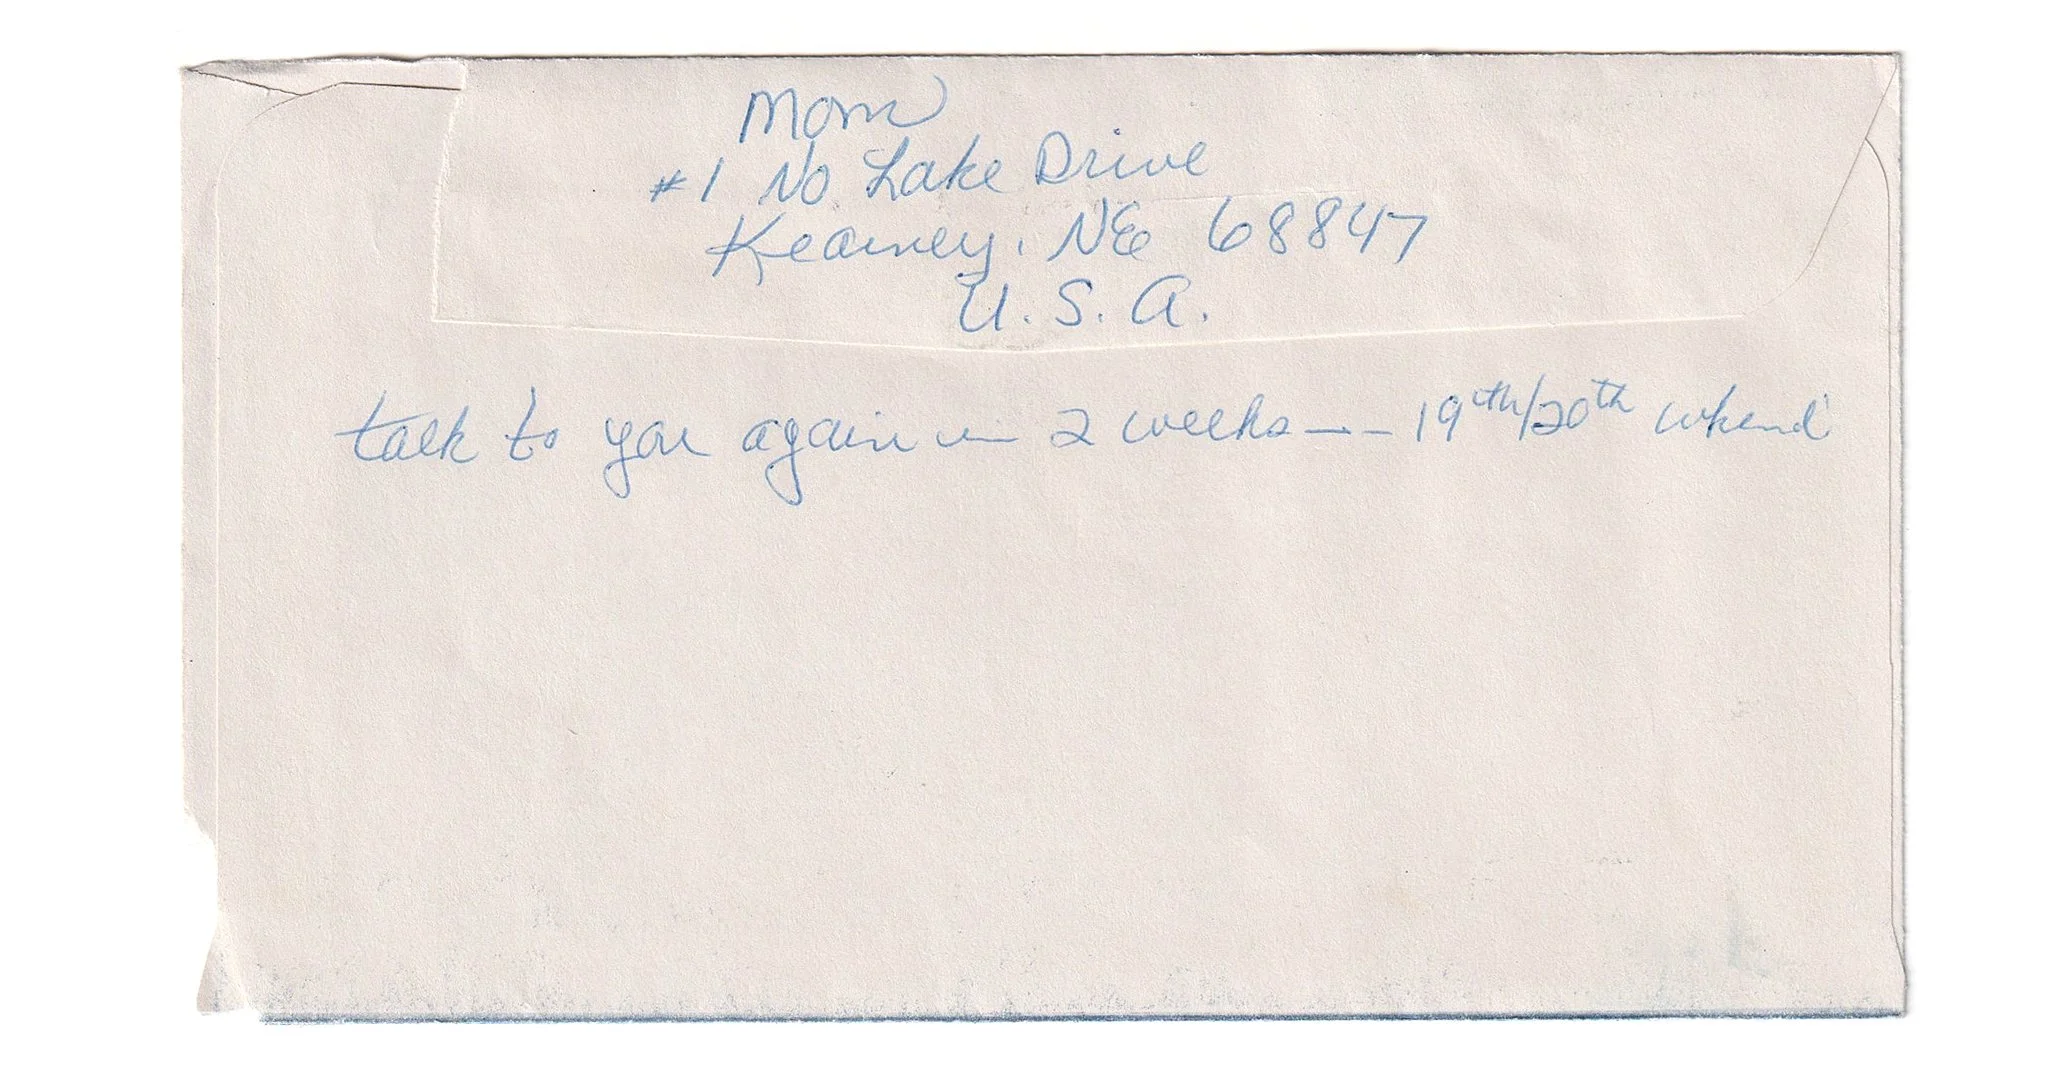 Mom
#1 No Lake Drive
Kearney, NE 68847
U.S.A.
talk to you again in 2 weeks -- 19th/20th wkend